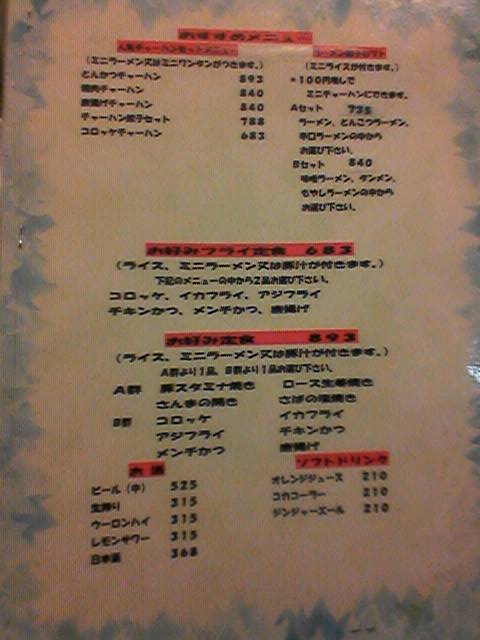 おすすめメニュー
人気チャーハンセットメニュー
(ミニラーメン又はミニワンタンがつきます。)
とんかつチャーハン 893
焼肉チャーハン 840
唐揚げチャーハン 840
チャーハン餃子セット 788
コロッケチャーハン 683
ラーメン餃子セット
(ミニライスが付きます。)
*100円増しで
ミニチャーハンにできます。
Aセット 735
ラーメン、とんこつラーメン、
辛口ラーメンの中から
お選び下さい。
Bセット 840
味噌ラーメン、タンメン、
もやしラーメンの中から
お選び下さい。
お好みフライ定食 683
(ライス、ミニラーメン又は豚汁が付きます。)
下記のメニューの中から2品お選び下さい。
コロッケ、イカフライ、アジフライ
チキンかつ、メンチかつ、唐揚げ
お好み定食 893
(ライス、ミニラーメン又は豚汁が付きます。)
A群より1品、B群より1品お選び下さい。
A群 豚スタミナ焼き ロース生姜焼き
さんまの開き さばの塩焼き
B群 コロッケ イカフライ
アジフライ チキンかつ
メンチかつ 唐揚げ
お酒
ビール(中) 525
生搾り 315
ウーロンハイ 315
レモンサワー 315
日本酒 368
ソフトドリンク
オレンジジュース 210
コカコーラー 210
ジンジャーエール 210